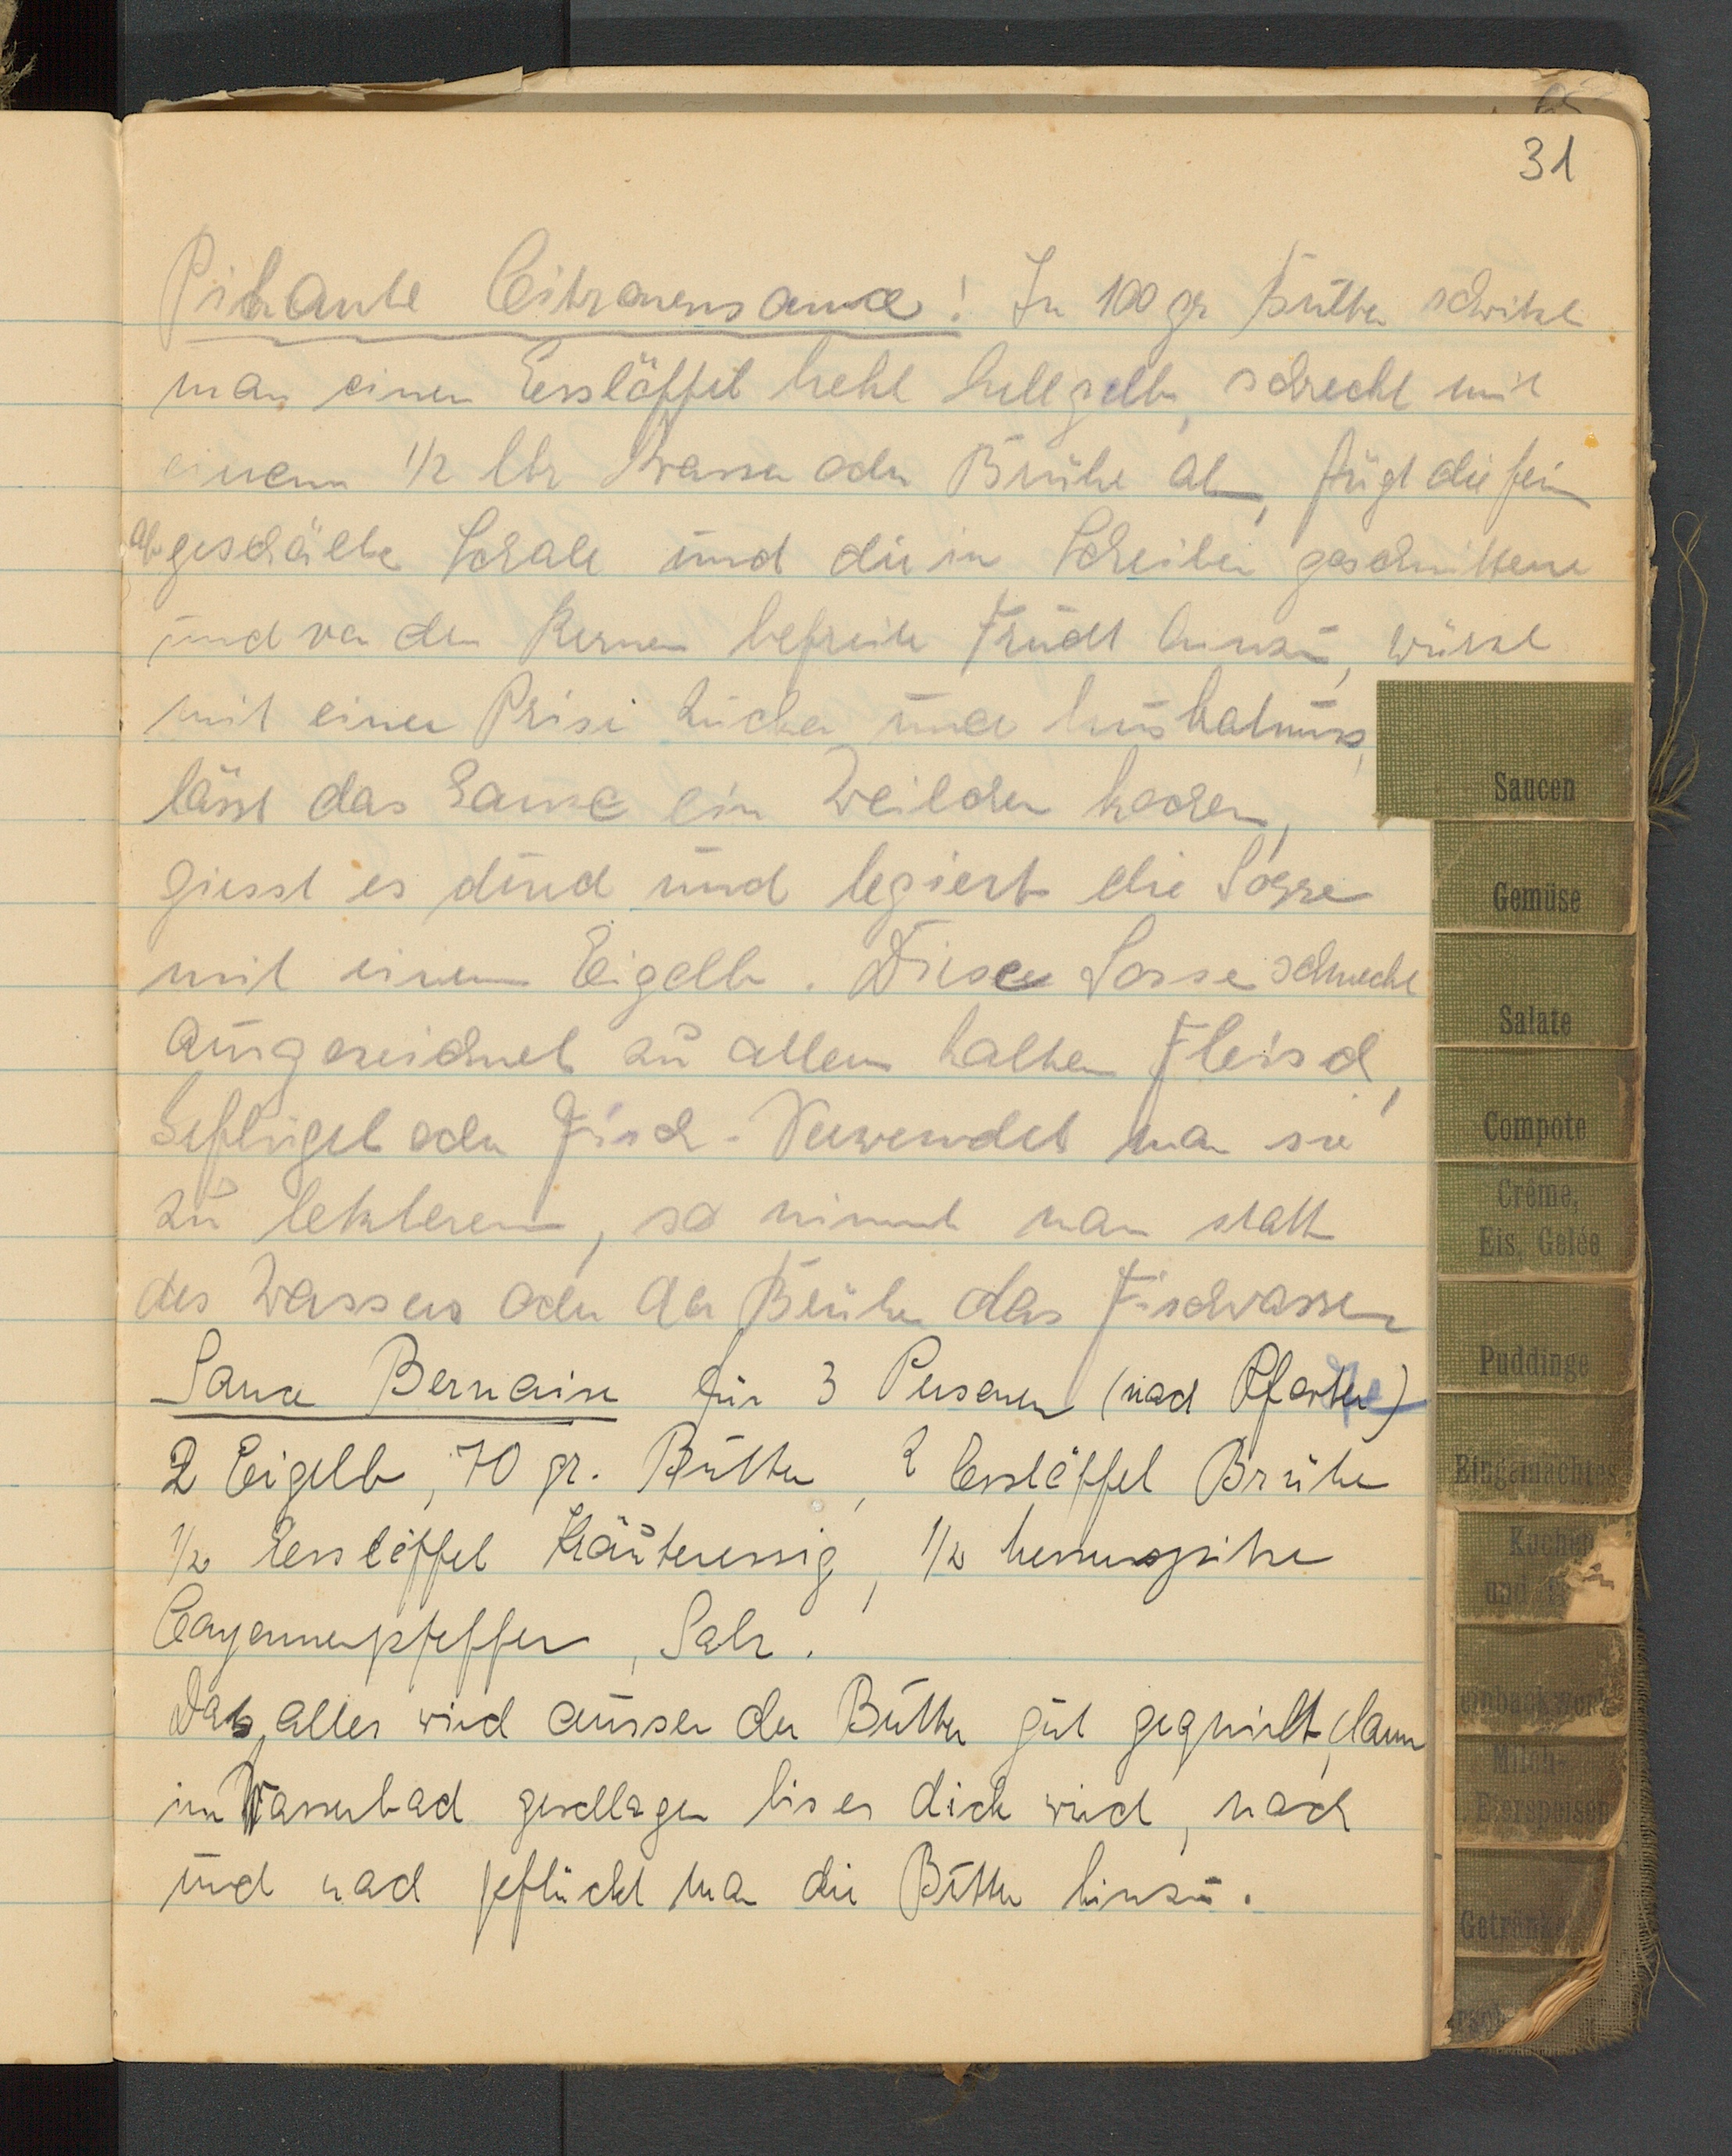 31
Pikante Citronensauce! In 100 gr Butter schwitzt
man einen Esslöffel Mehl hellgelb, schreckt mit
einem 1/2 Ltr Wasser oder Brühe ab, fügt die fein
abgeschälte Schale und die in Scheiben geschnittene
und von den Kernen befreite Frucht hinzu, würzt
mit einer Prise Zucker und Muskatnuss,
lässt das Ganze ein Weilchen kochen,
giesst es durch und legiert die Sosse
mit einem Eigelb. Diese Sosse schmeckt
ausgezeichnet zu allem kalten Fleisch,
Geflügel oder Fisch. Verwendet man sie
zu letzterem, so nimmt man statt
des Wassers oder der Brühe das Fischwasser
Sauce Bernaise für 3 Personen (nach)
2 Eigelb, 70 gr. Butter, 2 Esslöffel Brühe
1/2 Esslöffel Kräuteressig, 1/2 Messerspitze
Cayennepfeffer, Salz.
Das alles wird ausser der Butter gut gequirlt, dann
im Wasserbad geschlagen bis es dick wird, nach
und nach pflückt man die Butter hinzu.
Saucen
Gemüse
Salate
Compote
Crême,
Eis, Gelée
Puddinge
Eingemachtes
Kuchen
und
Milch-
Eierspeisen
Getränke